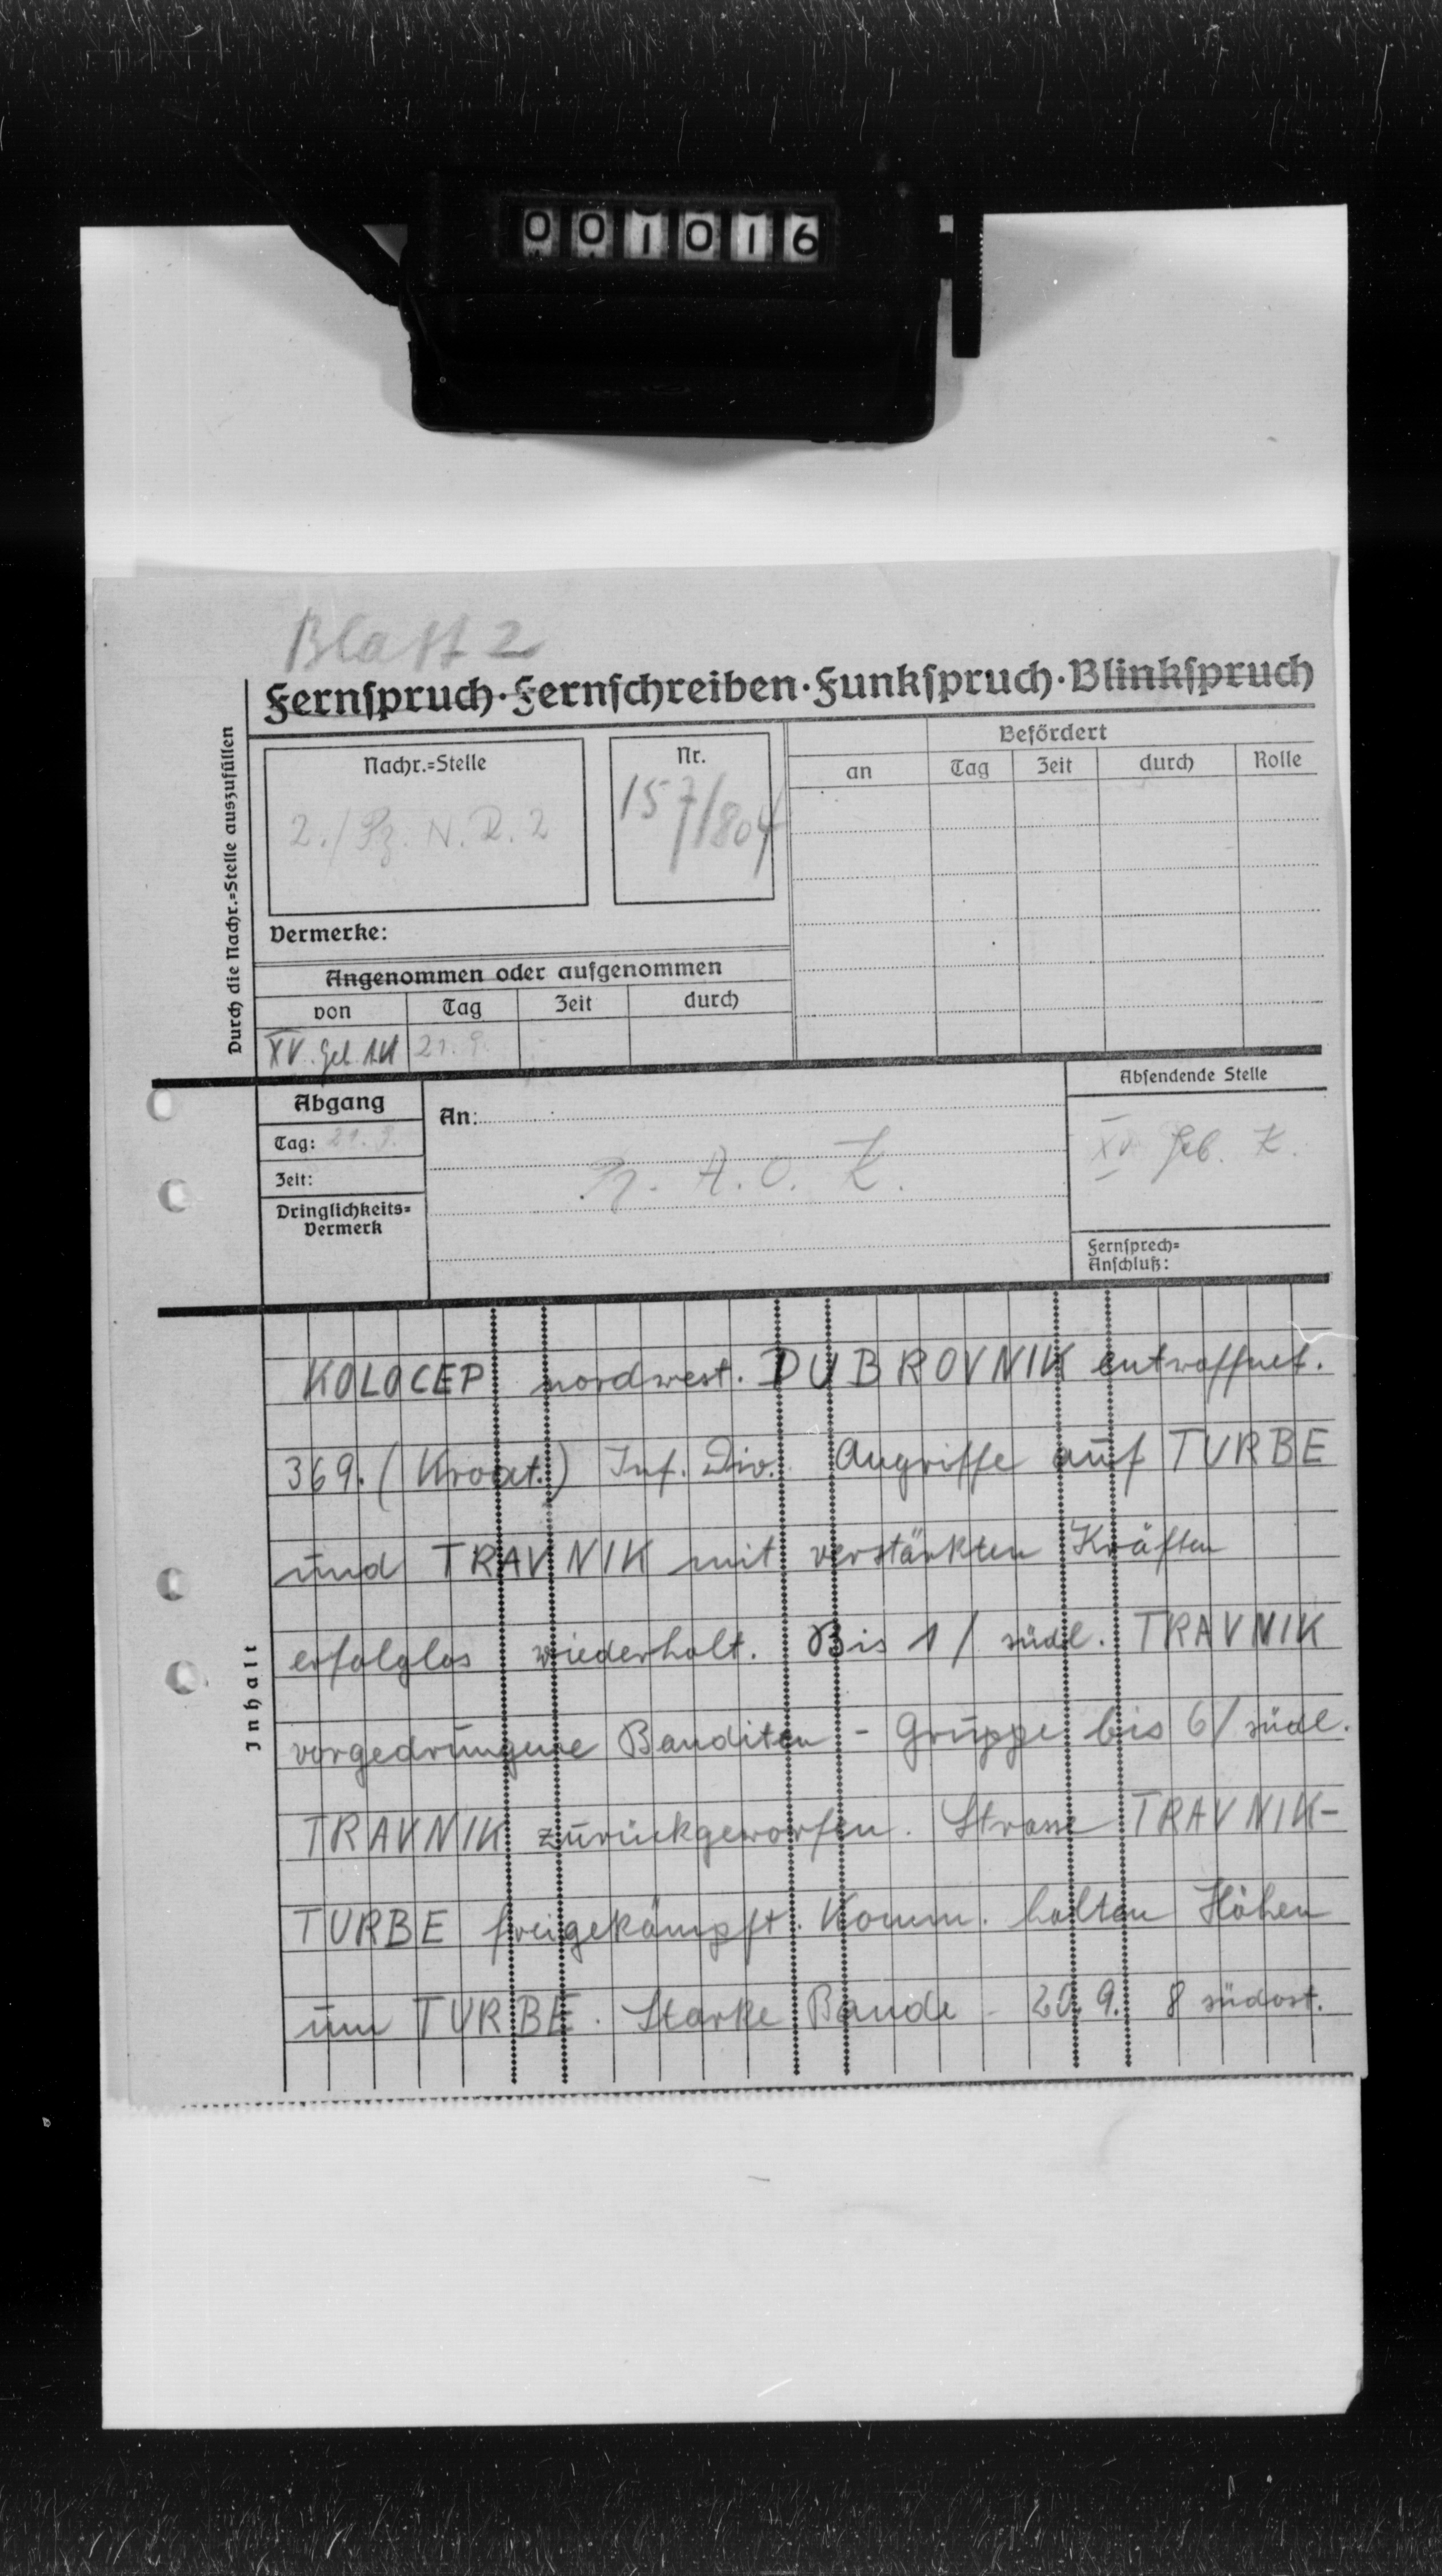 001016
Blatt 2
Fernspruch·Fernschreiben·Funkspruch·Blinkspruch
Durch die Nachr.=Stelle auszufüllen
Nachr.=Stelle
2./Pz. N. R. 2
Nr.
157/804
Befördert
an Tag Zeit durch Rolle
Vermerke:
Angenommen oder aufgenommen
von Tag Zeit durch
XV. Geb. AK 21. 9.
Abgang
Tag: 21. 9.
Zeit:
Dringlichkeits=
Vermerk
An:
Pz. A. O. K.
Absendende Stelle
XV Geb. K.
Fernsprech=
Anschluß:
Inhalt
KOLOCEP nordwest. DUBROVNIK entwaffnet.
369. (Kroat.) Inf. Div. Angriffe auf TURBE
und TRAVNIK mit verstärkten Kräften
erfolglos wiederholt. Bis 1/ südl. TRAVNIK
vorgedrungene Banditen - Gruppe bis 6/ südl.
TRAVNIK zurückgeworfen. Strasse TRAVNIK-
TURBE freigekämpft. Komm. halten Höhen
um TURBE. Starke Bande - 20. 9. 8 südost.